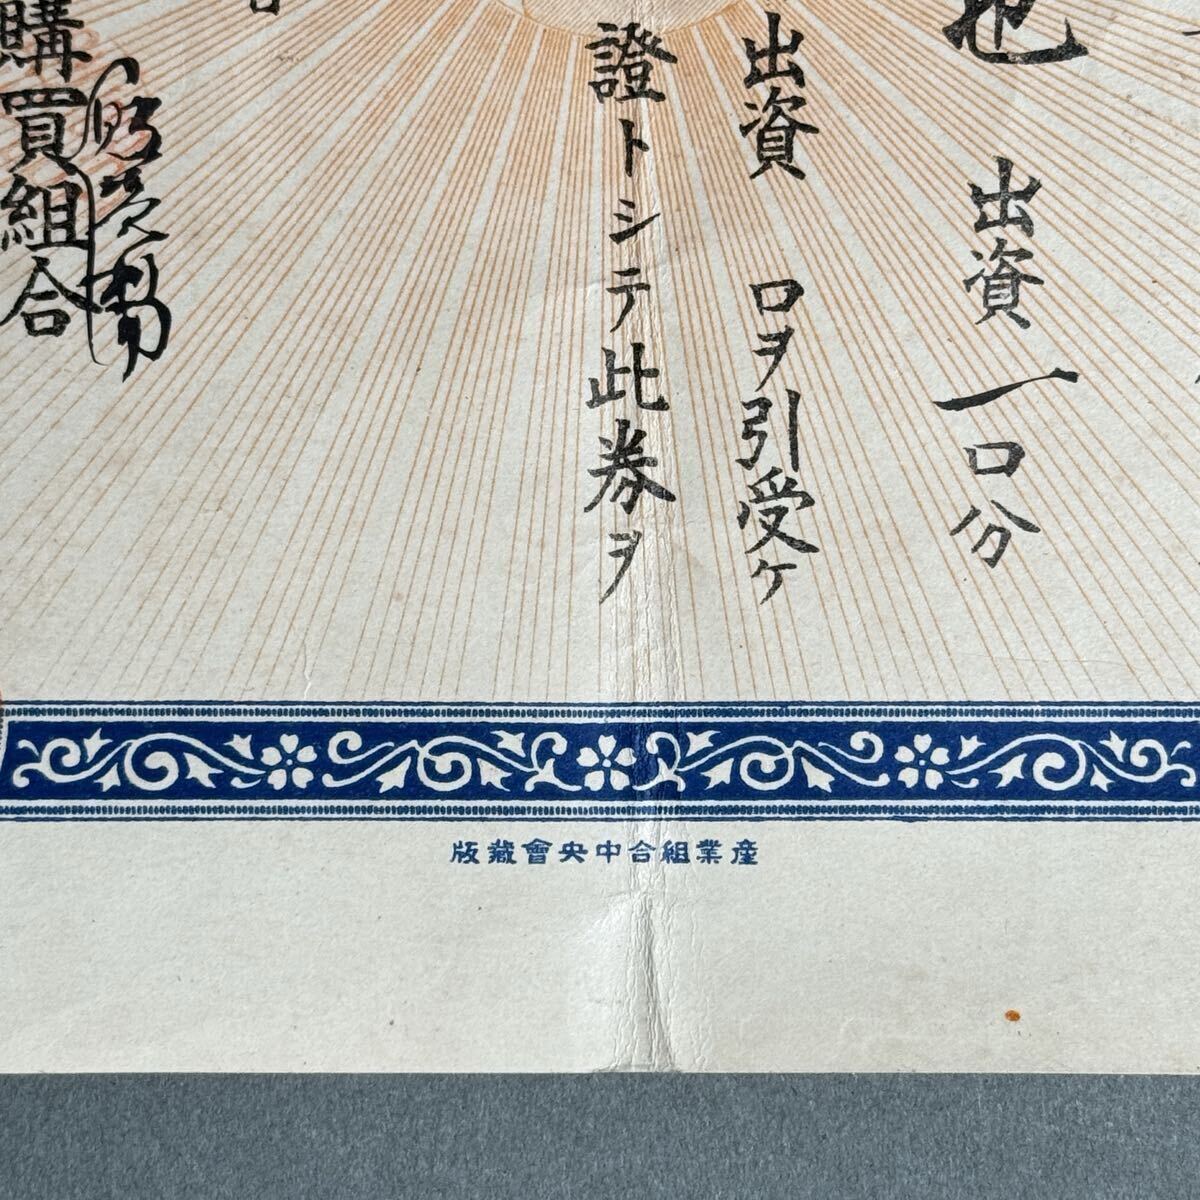 也 出資一口分
出資 口ヲ引受ケ
證トシテ此券ヲ
購買組合
産業組合中央會藏版